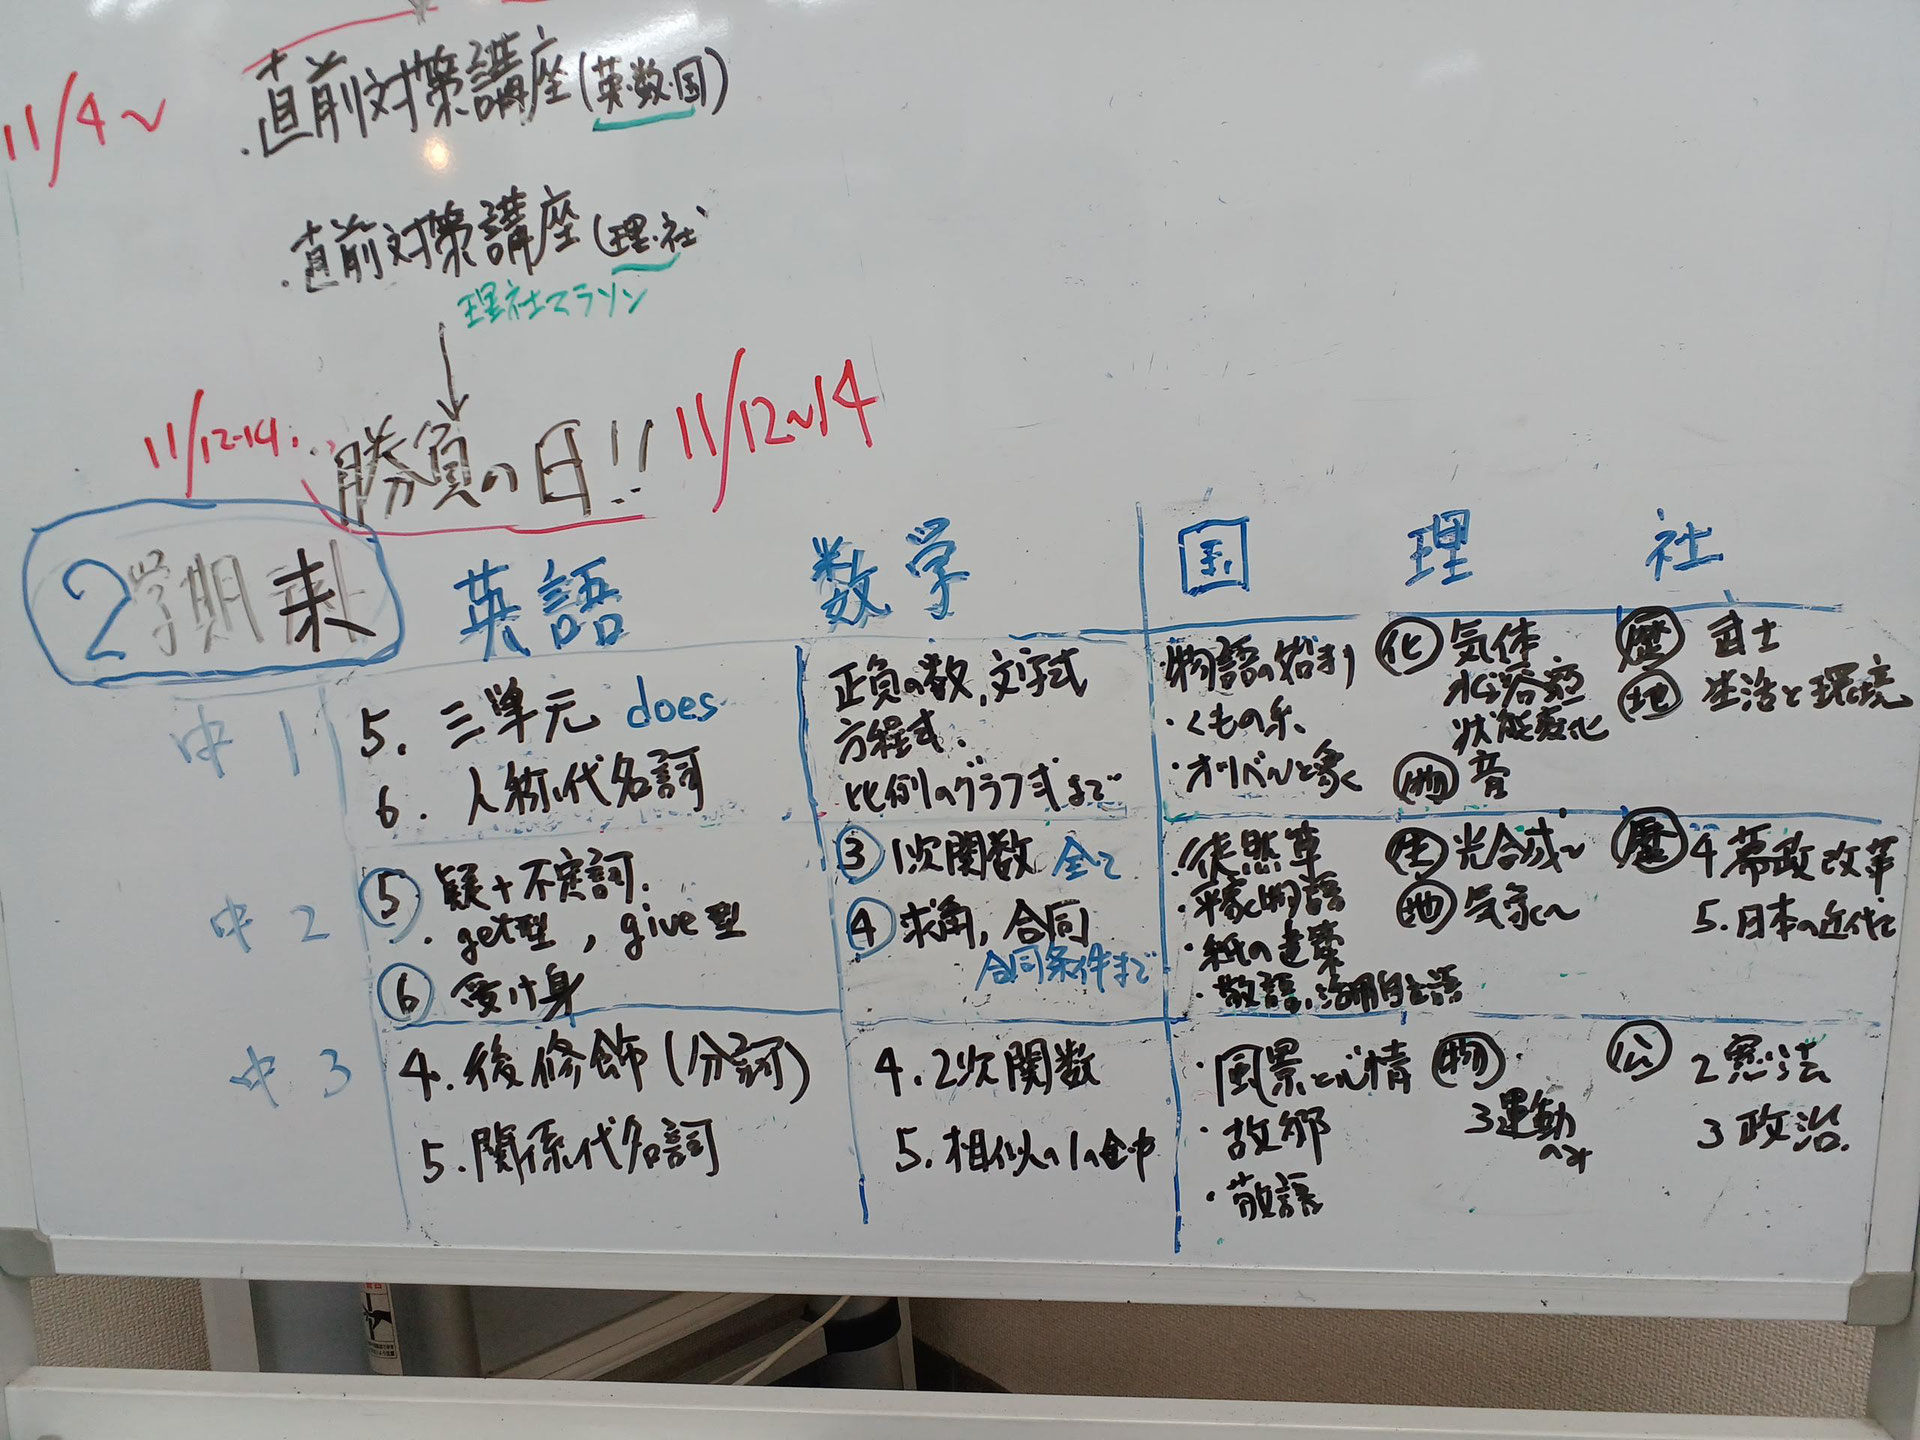 11/4～
・直前対策講座(英・数・国)
・直前対策講座(理・社
理社マラソン
11/12-14
勝負の日!! 11/12～14
2学期末
英語 数学 国 理 社
中1
5. 三単元 does
6. 人称代名詞
正負の数, 文字式
方程式.
比例のグラフ式まで
・物語の始まり
・くもの糸
・オツベルと象
化 気体
水溶液
状態変化
物 音
歴 武士
地 生活と環境
中2
⑤ 疑+不定詞.
・get型, give型
⑥ 受け身
③ 1次関数 全て
④ 求角, 合同
合同条件まで
・徒然草
・平家物語
・紙の建築
・敬語、活用自立語
生 光合成～
地 気象～
歴 4 幕政改革
5. 日本の近代化
中3
4. 後修飾(分詞)
5. 関係代名詞
4. 2次関数
5. 相似の1の途中
・風景と心情
・故郷
・敬語
物
3運動
のみ
公 2 憲法
3 政治.